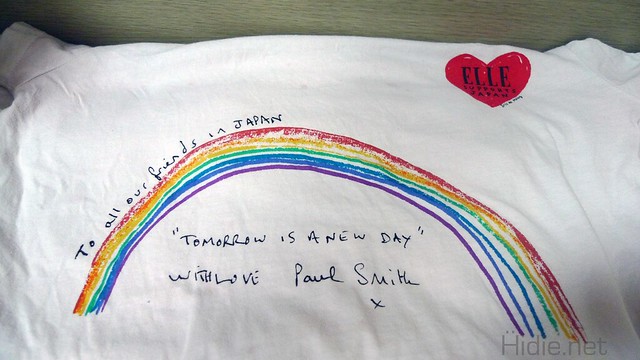 ELLE
SUPPORTS
JAPAN
To all our friends in JAPAN
"TOMORROW IS A NEW DAY"
WITH LOVE Paul Smith
x
Hidie.net